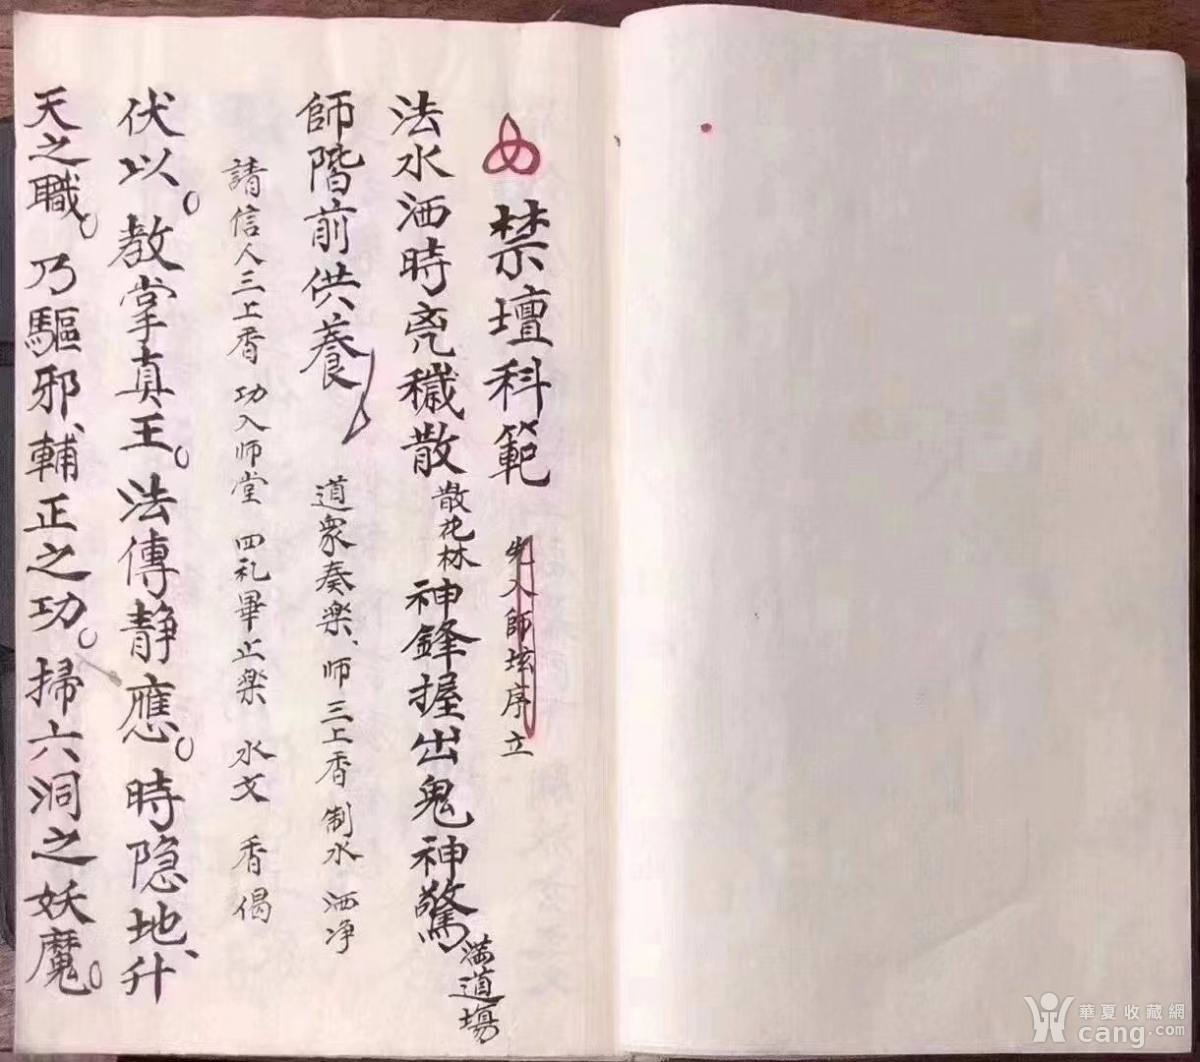 禁壇科範 先入師坛序立
法水洒時兇穢散 散花林 神鋒握出鬼神驚 滿道場
師階前供養 道衆奏楽、师三上香 制水 洒净
請信人三上香 功入师堂 四礼畢止楽 水文 香偈
伏以。教掌真王。法傳静應。時隐地、升
天之職。乃驅邪、輔正之功。掃六洞之妖魔。
華夏收藏網
cang.com